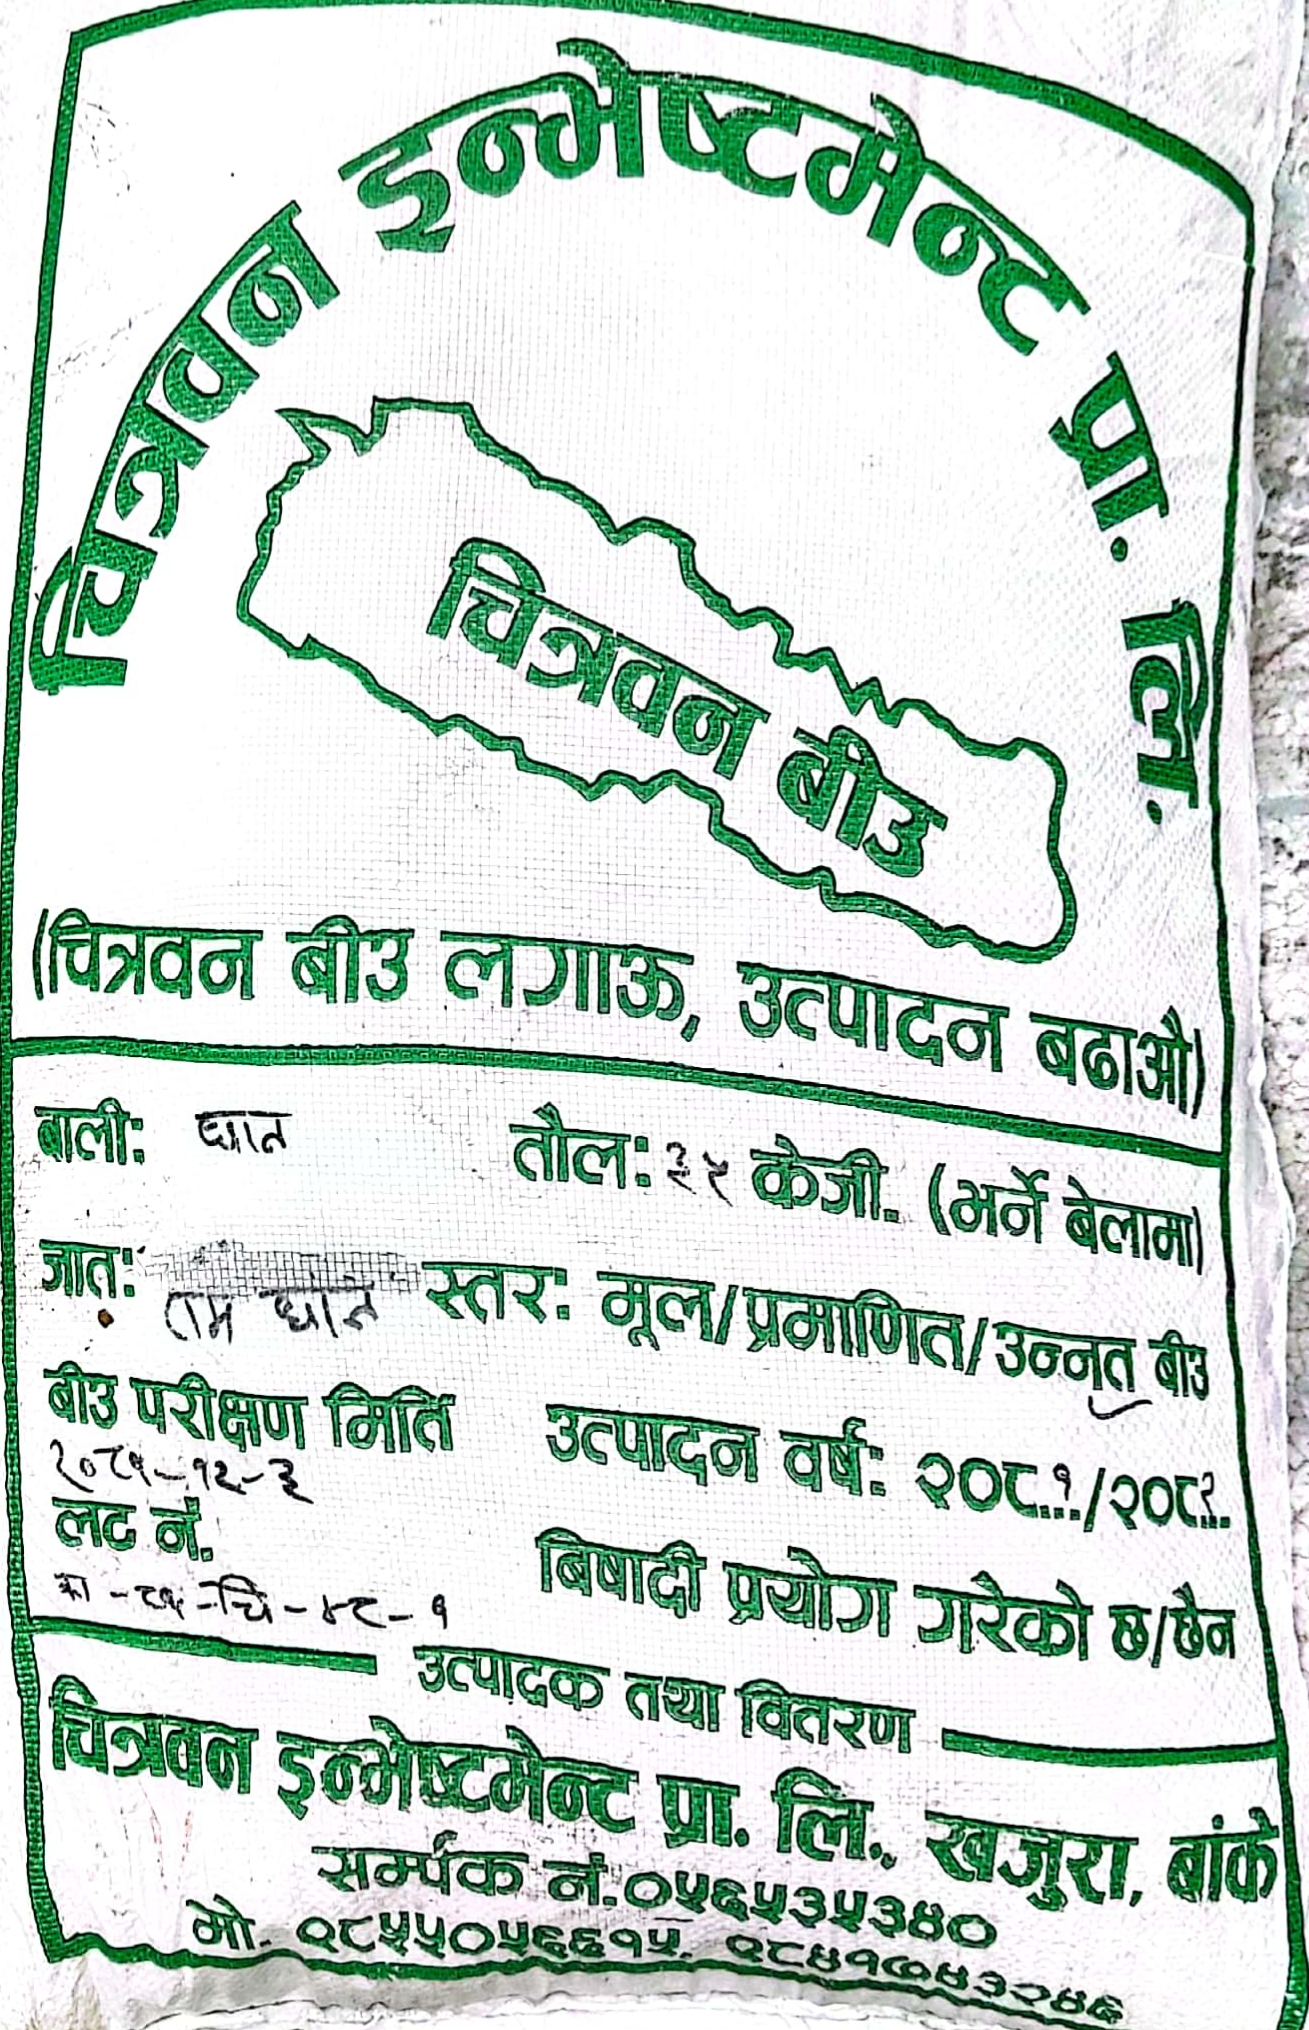 चित्रवन इन्भेष्टमेन्ट प्रा. लि.
चित्रवन बीउ
(चित्रवन बीउ लगाऊ, उत्पादन बढाऔ)
बाली: धान तौल: ३५ केजी. (भर्ने बेलामा)
जात: राम धान स्तर: मूल/प्रमाणित/उन्नत बीउ
बीउ परीक्षण मिति उत्पादन वर्ष: २०८१/२०८२
२०८१-१२-३
लट नं. बिषादी प्रयोग गरेको छ/छैन
चि-४८-१
उत्पादक तथा वितरण
चित्रवन इन्भेष्टमेन्ट प्रा. लि., खजुरा, बांके
सर्म्पक नं.०५६५३५३४०
मो. ९८५५०५६६१५, ९८४१७४३२४६